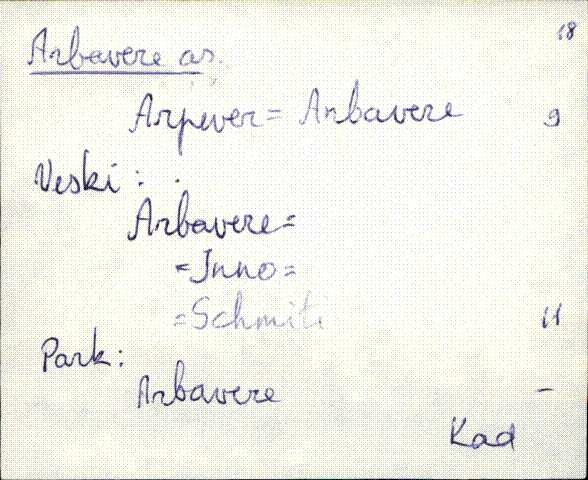 18
Arbavere as.
Arpever = Arbavere 9
Veski:
Arbavere =
= Inno =
= Schmiti 11
Park:
Arbavere –
Kad